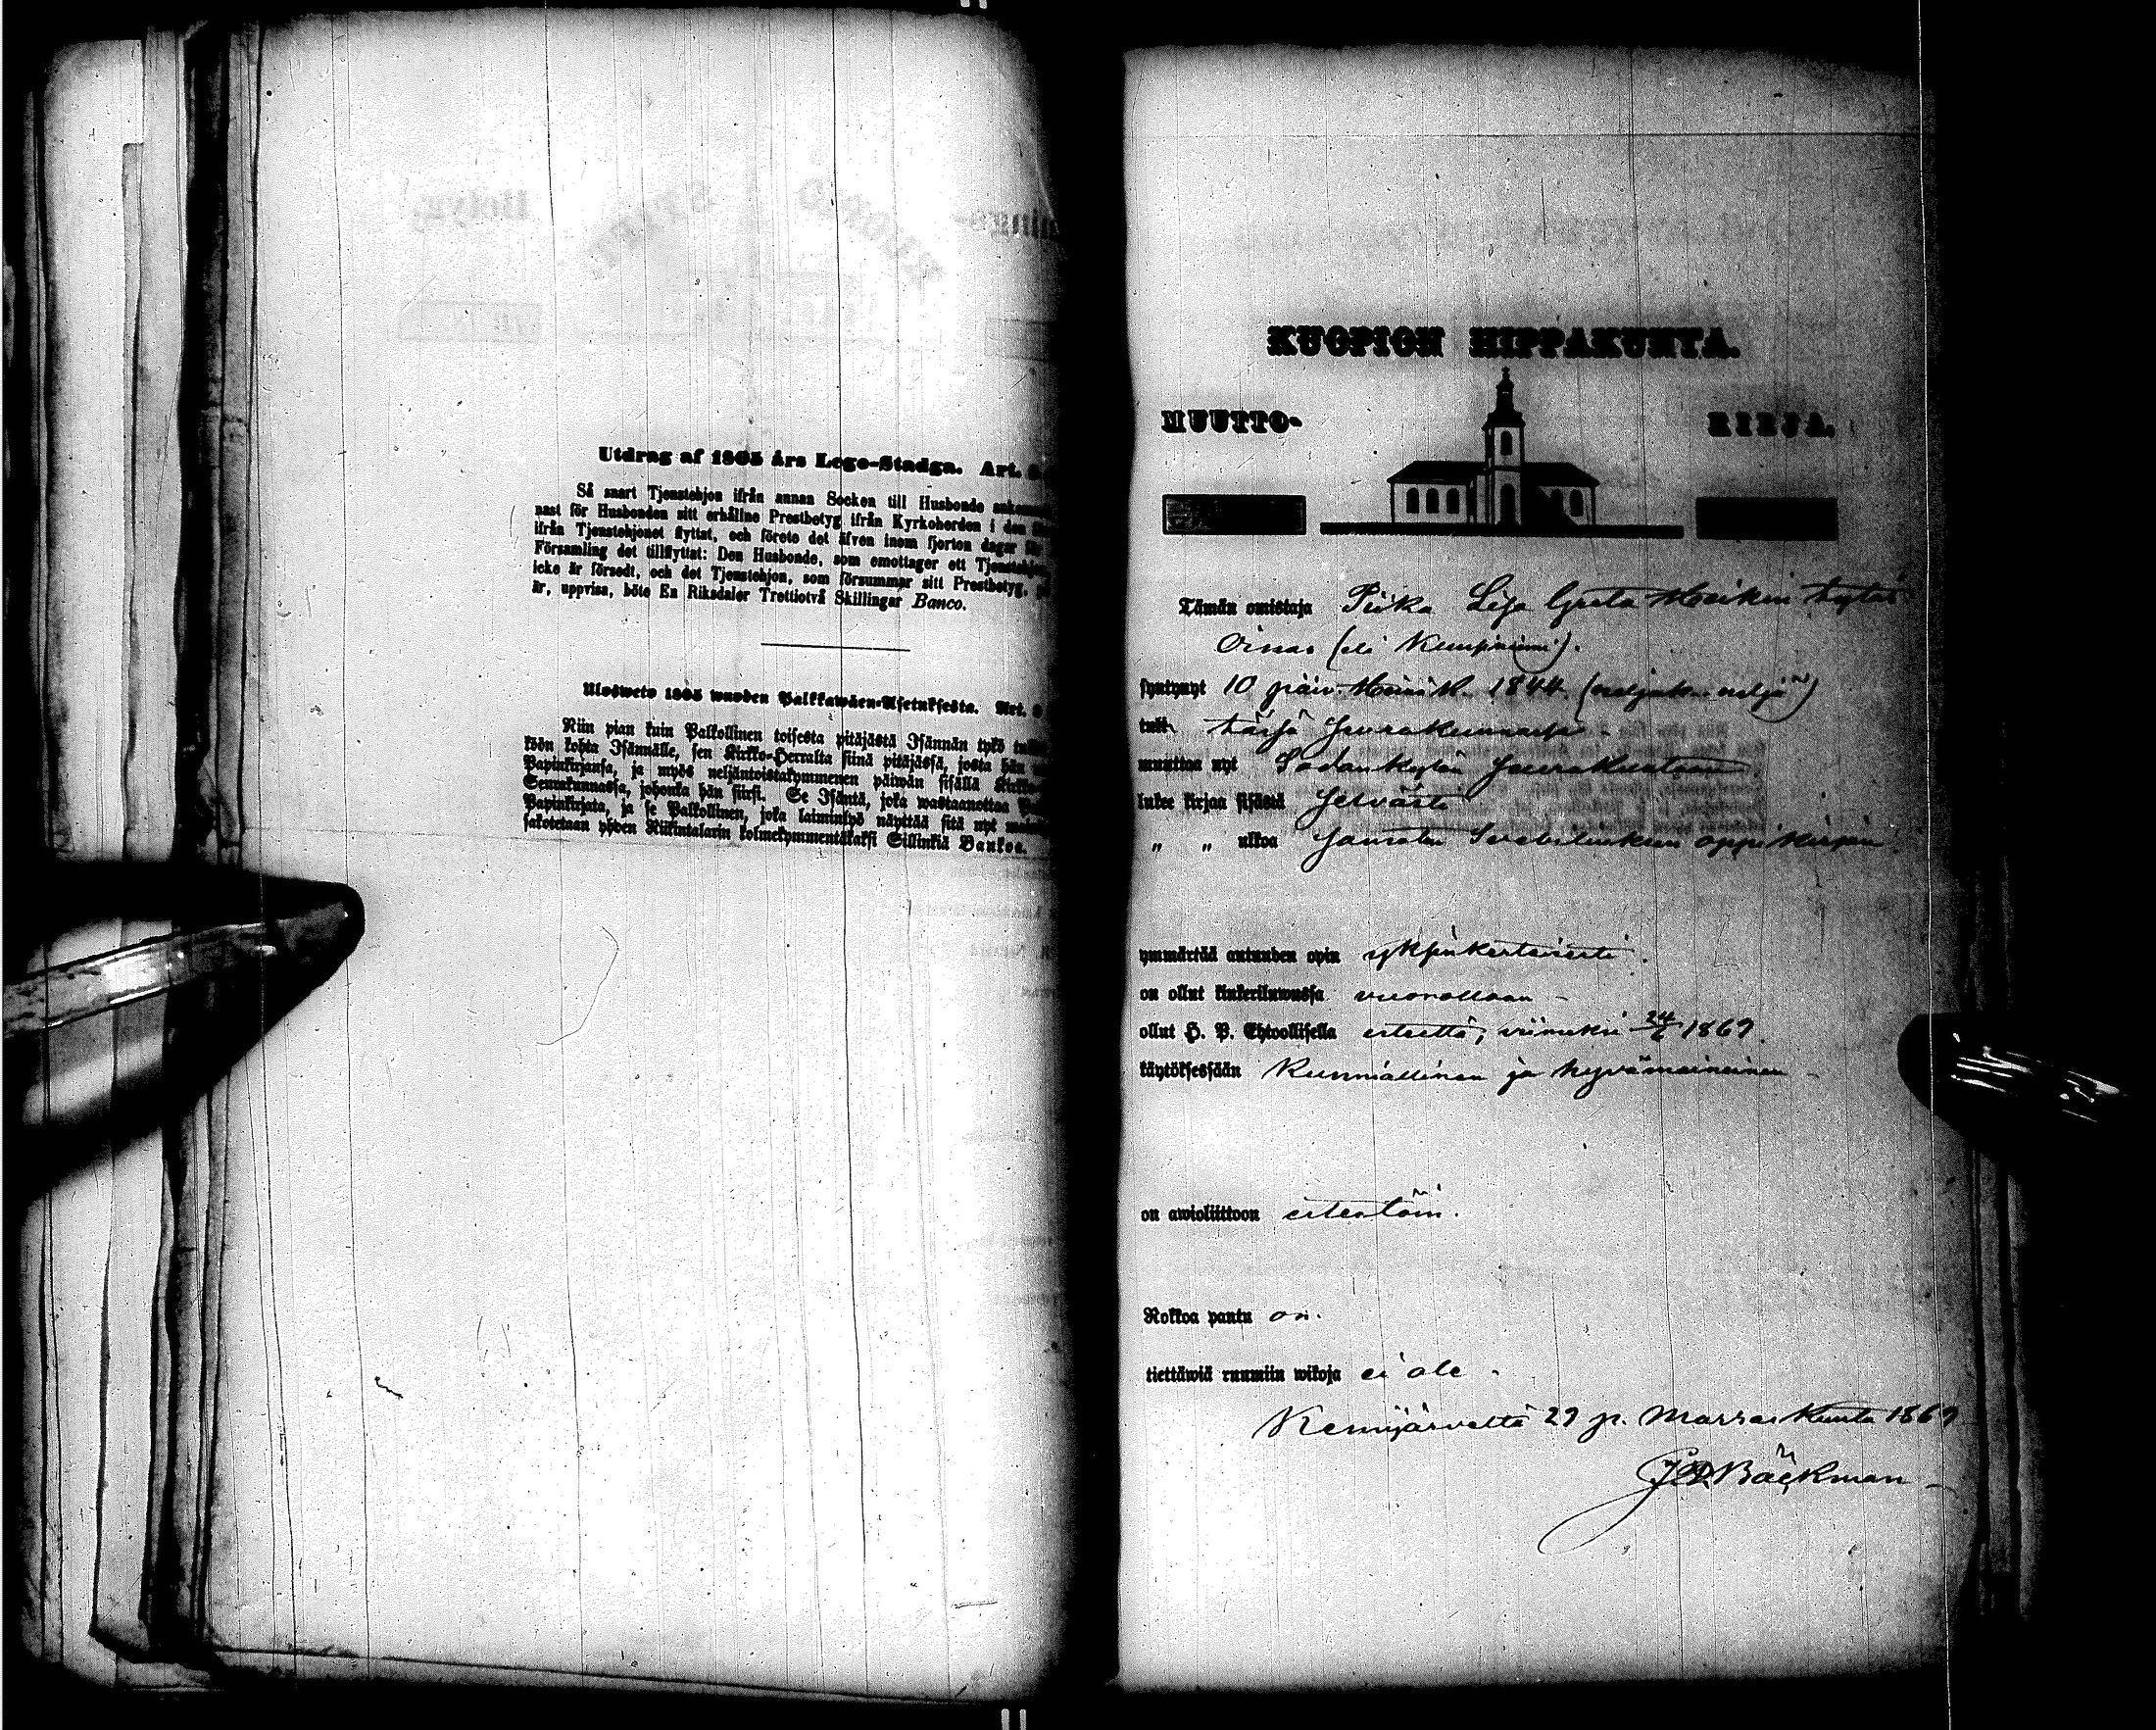 Utdrag af 1805 års Lego-Stadga. Art. 8.
Så snart Tjenstehjon ifrån annan Socken till Husbonde
nast för Husbonden sitt erhållne Prestbetyg ifrån Kyrkoherden i den
ifrån Tjenstehjonet flyttat, och förete det äfven inom fjorton dagar för
Församling det tillflyttat: Den Husbonde, som emottager ett
icke är försedt, och det Tjenstehjon, som försummar sitt Prestbetyg,
är, uppvisa, böte En Riksdaler Trettiotvå Skillingar Banco.
Ulosweto 1805 wuoden Palkkawäen-Asetuksesta. Art. 8
Niin pian kuin Palkollinen toisesta pitäjästä Isännän tykö
köön kohta Isännälle, sen Kirkko-Herralta siinä pitäjässä, josta hän
Papinkirjansa, ja myös neljäntoistakymmenen päiwän sisällä
Seurakunnassa, johonka hän siirsi. Se Isäntä, joka wastaanottaa
Papinkirjata, ja se Palkollinen, joka laiminlyö näyttää sitä nyt
sakotetaan yhden Riikintalarin kolmekymmentäkaksi Sillinkiä Bankoa.
KUOPION HIPPAKUNTA.
MUUTTO- KIRJA.
Tämän omistaja Piika Lisa Greta Heikin tytär
Oinas (eli Kumpuniemi).
syntynyt 10 päiv. Heinäk. 1844. (neljäk. neljä)
tässä Seurakunnassa.
muuttaa nyt Sodankylän Seurakuntaan.
lukee kirjaa sisästä Selvästi
„ „ ulkoa Samaten Svebiliuksen oppikirjan.
ymmärtää autuuden opin yksinkertaisesti.
on ollut kinkeriluwussa vuonollaan -
ollut H. P. Ehtoollisella esteettä; viimeksi 24/6 1869.
käytöksessään Kunniallinen ja hyvämaineinen -
on awioliittoon esteetöin.
Rokkoa pantu on.
tiettäwiä ruumiin wikoja ei ole -
Kemijärveltä 29 p. Marraskuuta 1869
Bäckman -